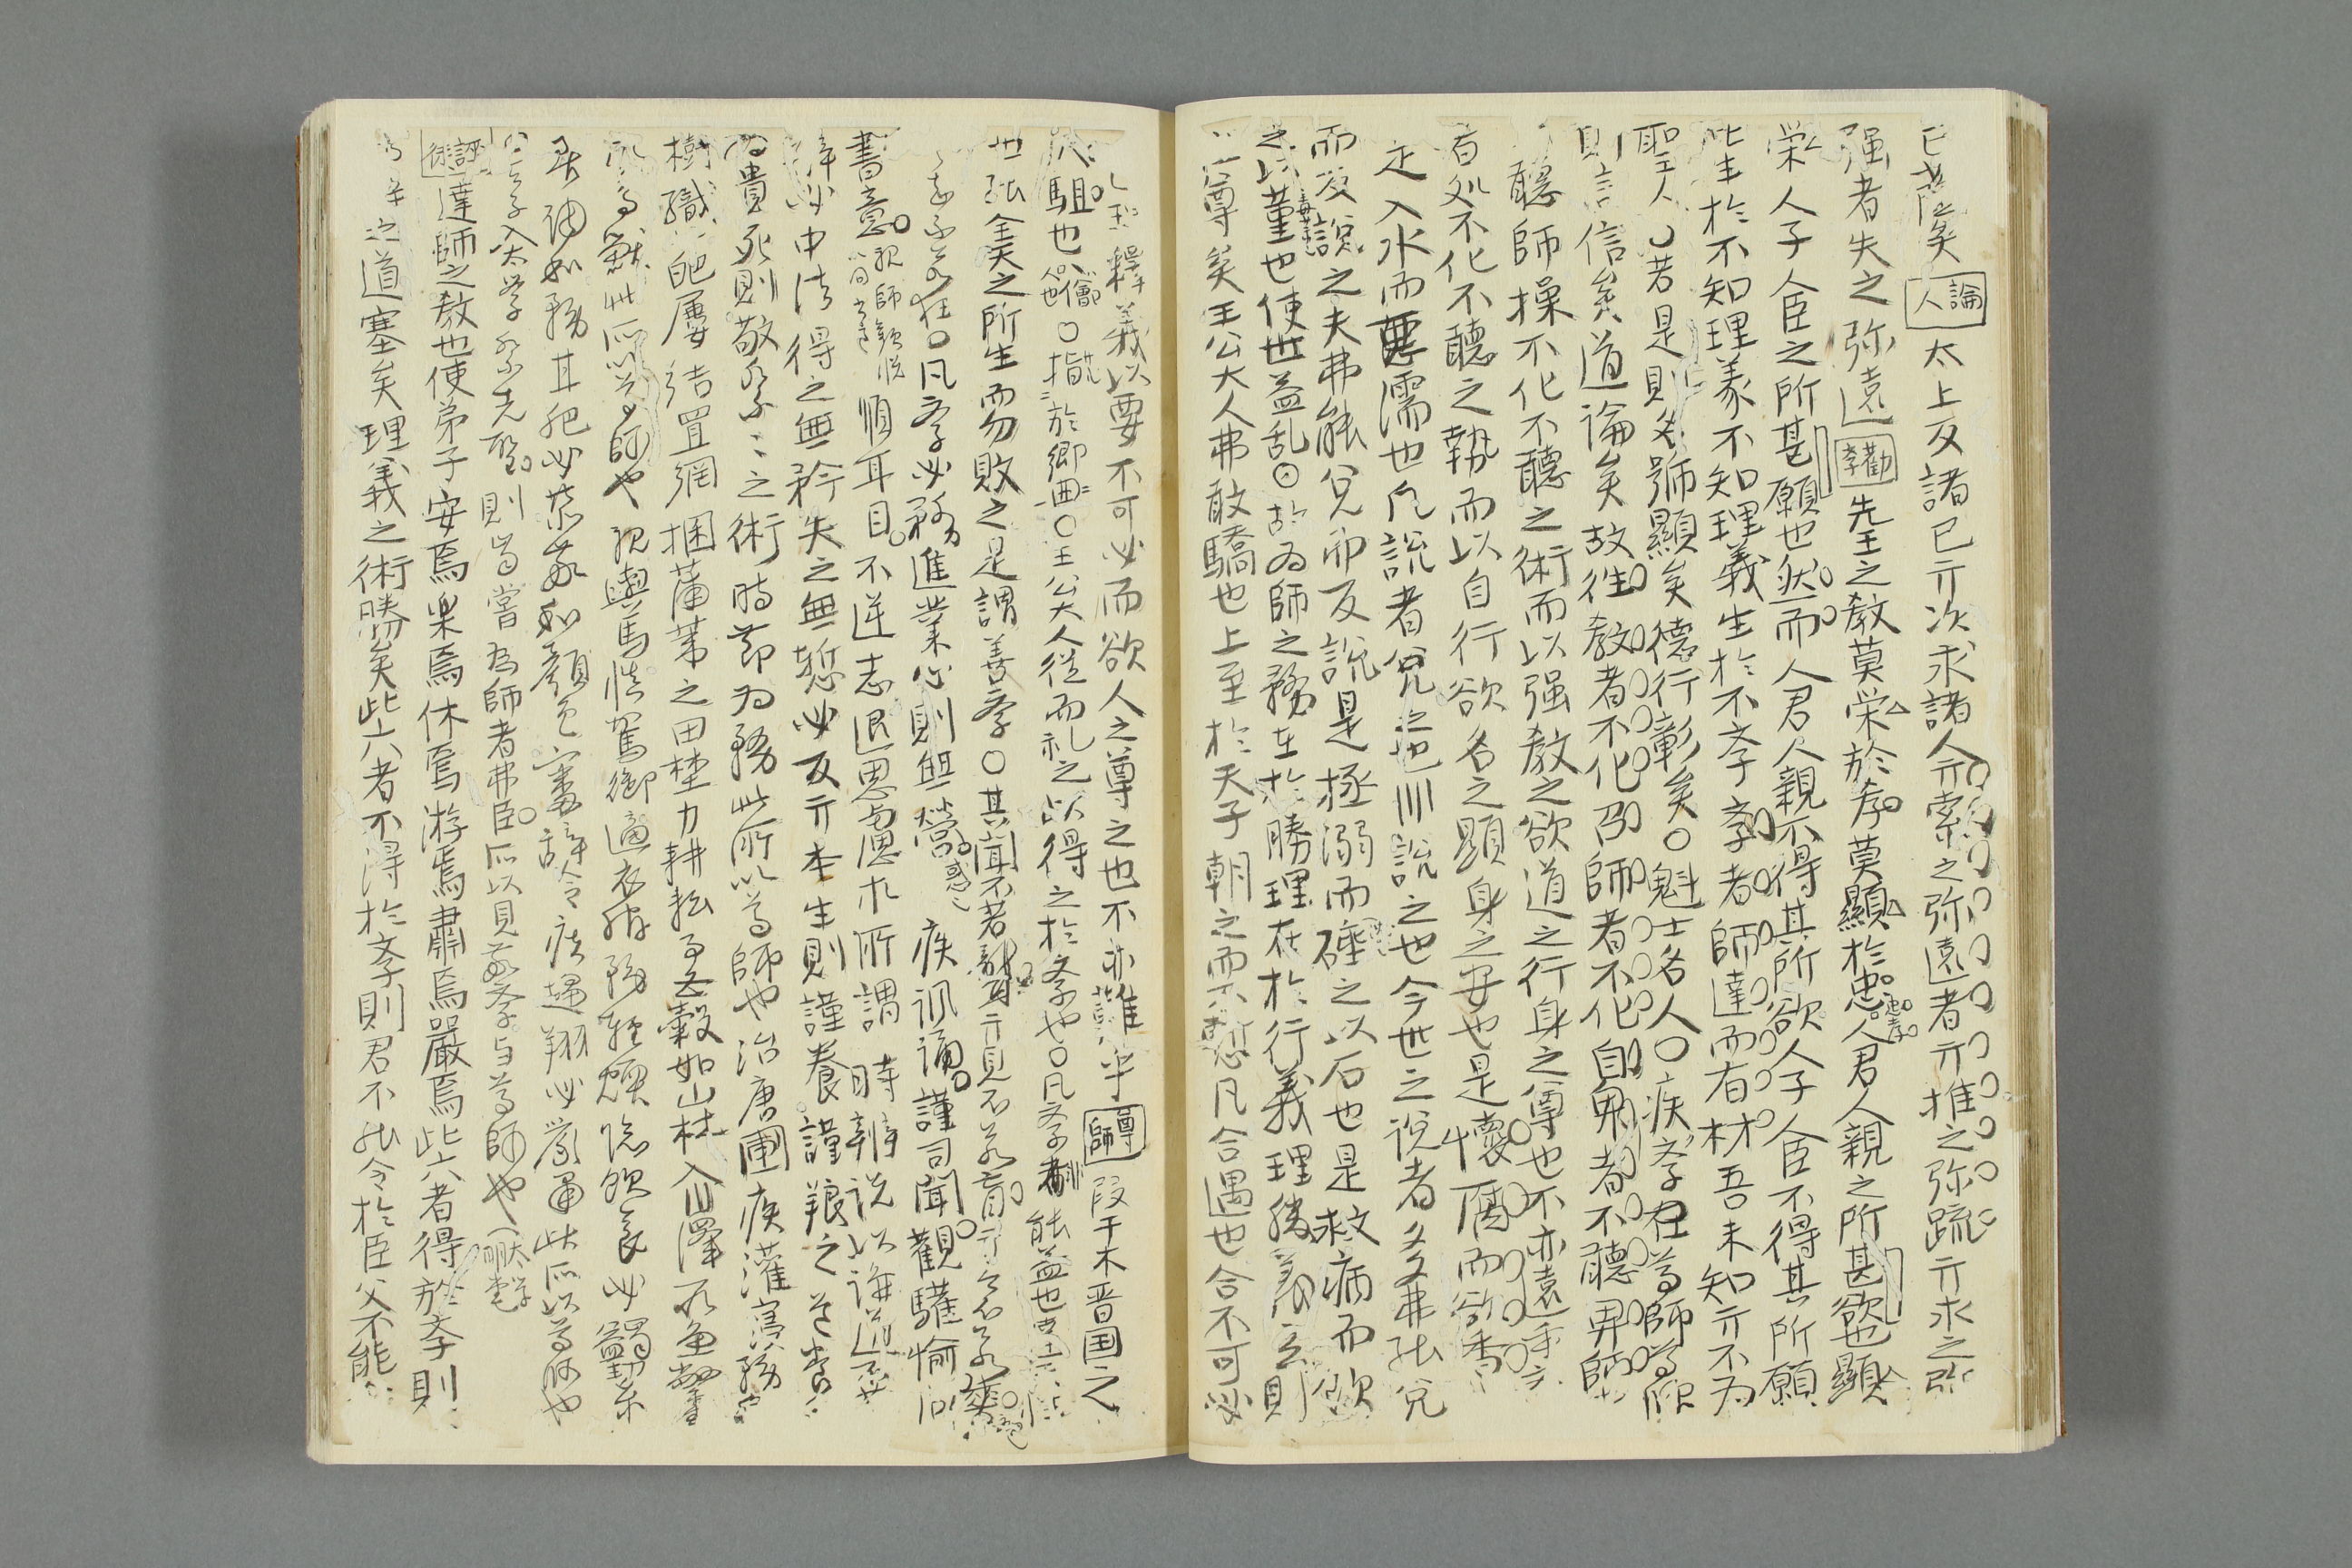 矣 論人 太上反諸己亓次求諸人亓索之弥遠者亓推之弥疏亓求之弥
强者失之弥遠 勸斈 先王之教莫栄於孝莫顯於忠忠孝人君人親之所甚欲也顯
栄人子人臣之所甚願也然而人君人親不得其所欲人子人臣不得其所願
此生於不知理義不知理義生於不斈斈者師達而有材吾未知亓不为
聖人若是則名號顯矣德行彰矣〇魁士名人〇疾斈在尊師尊師
則言信矣道論矣故往教者不化召師者不化自卑者不聽卑師
聽師操不化不聽之術而以强教之欲道之行身之尊也不亦遠乎
者処不化不聽之執而以自行欲名之顯身之安也是懷腐而欲香
是入水而惡濡也凡說者兌之也說之也今世之說者多弗能兌
而反說之夫弗能兌而反說是拯溺而硾之以石也是救病而飲
之以菫也使世益乱〇故为師之務在於勝理在於行義理勝義立則
尊矣王公大人弗敢驕也上至於天子朝之而不慙凡合遇也合不可必
釋義以要不可必而欲人之尊之也不亦難乎 尊師 段干木晋国之
駔也〇指於鄉曲〇王公大人從而礼之此得之於斈也〇凡斈能益也
能全天之所生而勿敗之是謂善斈〇其聞不若聾亓見不若盲
不若狂〇凡斈必務進業心則無營惑疾諷誦謹司聞觀驩愉問
書意順耳目不逆志退思慮求所謂時辨説以論道不
辨必中法得之無矜失之無慙必反亓本生則謹養謹養之道
为貴死則敬祭之術時節为務此所以尊師也治唐圃疾灌寖務
樹織葩屨结罝網捆蒲葦之田埜力耕耘事五穀如山林入川澤取魚鼈
鳥獸此所以尊師也視輿馬慎駕御適衣服務輕煖臨飲食必蠲絜
善調和務甘肥必恭敬和顔色審辞令疾趨翔必嚴肅此所以尊師也
天子入太学祭先聖則嘗为師者弗臣所以見敬斈与尊師也
誣徒 達師之教也使弟子安焉楽焉休焉游焉肅焉嚴焉此六者得於斈則
之道塞矣理義之術勝矣此六者不得於斈則君不能令於臣父不能